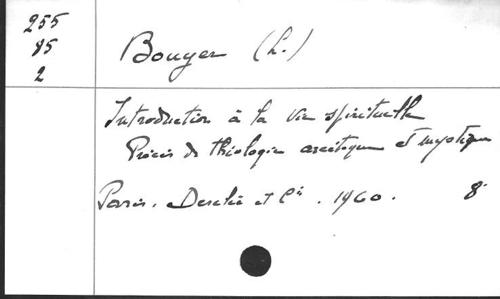 255
85
2
Bouyer (L.)
Introduction à la vie spirituelle
Précis de théologie ascétique et mystique
Paris. Desclée et Cie. 1960. 8°